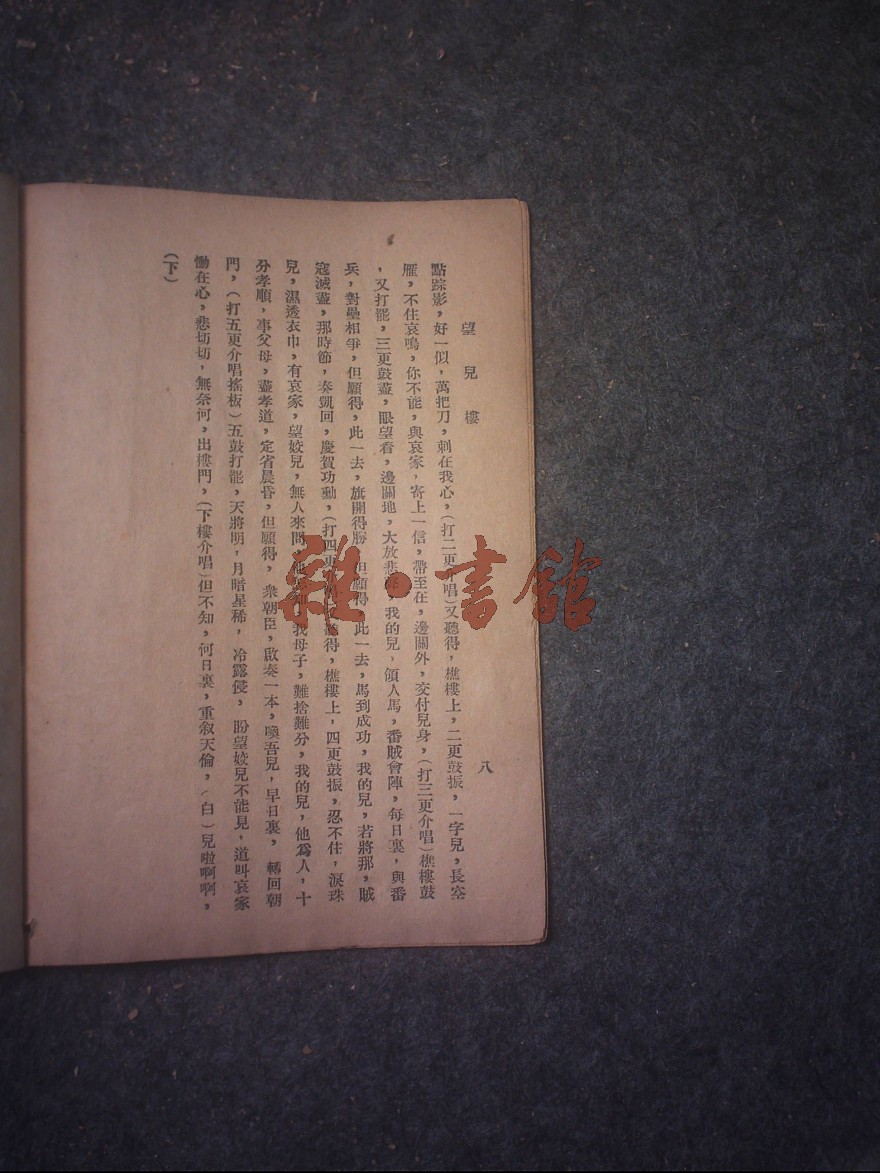 望兒樓
八
點踪影，好一似，萬把刀，刺在我心，（打二更介唱）又聽得，樵樓上，二更鼓振，一字兒，長空
雁，不住哀鳴，你不能，與哀家，寄上一信，帶至在，邊關外，交付兒身，（打三更介唱）樵樓鼓
，又打罷，三更鼓盡，眼望看，邊關地，大放悲，我的兒，領人馬，番賊會陣，每日裏，與番
兵，對壘相爭，但願得，此一去，旗開得勝，但願得，此一去，馬到成功，我的兒，若將那，賊
寇滅盡，那時節，奏凱回，慶賀功動，（打四更聽得，樵樓上，四更鼓振，忍不住，淚珠
兒，濕透衣巾，有哀家，望姣兒，無人來問，我母子，難捨難分，我的兒，他爲人，十
分孝順，事父母，盡孝道，定省晨昏，但願得，衆朝臣，啟奏一本，喚吾兒，早日裏，轉回朝
門，（打五更介唱搖板）五鼓打罷，天將明，月暗星稀，冷露侵，盼望姣兒不能見，道叫哀家
慟在心，悲切切，無奈何，出樓門，（下樓介唱）但不知，何日裏，重叙天倫，（白）兒啦啊啊，
（下）
雜·書館